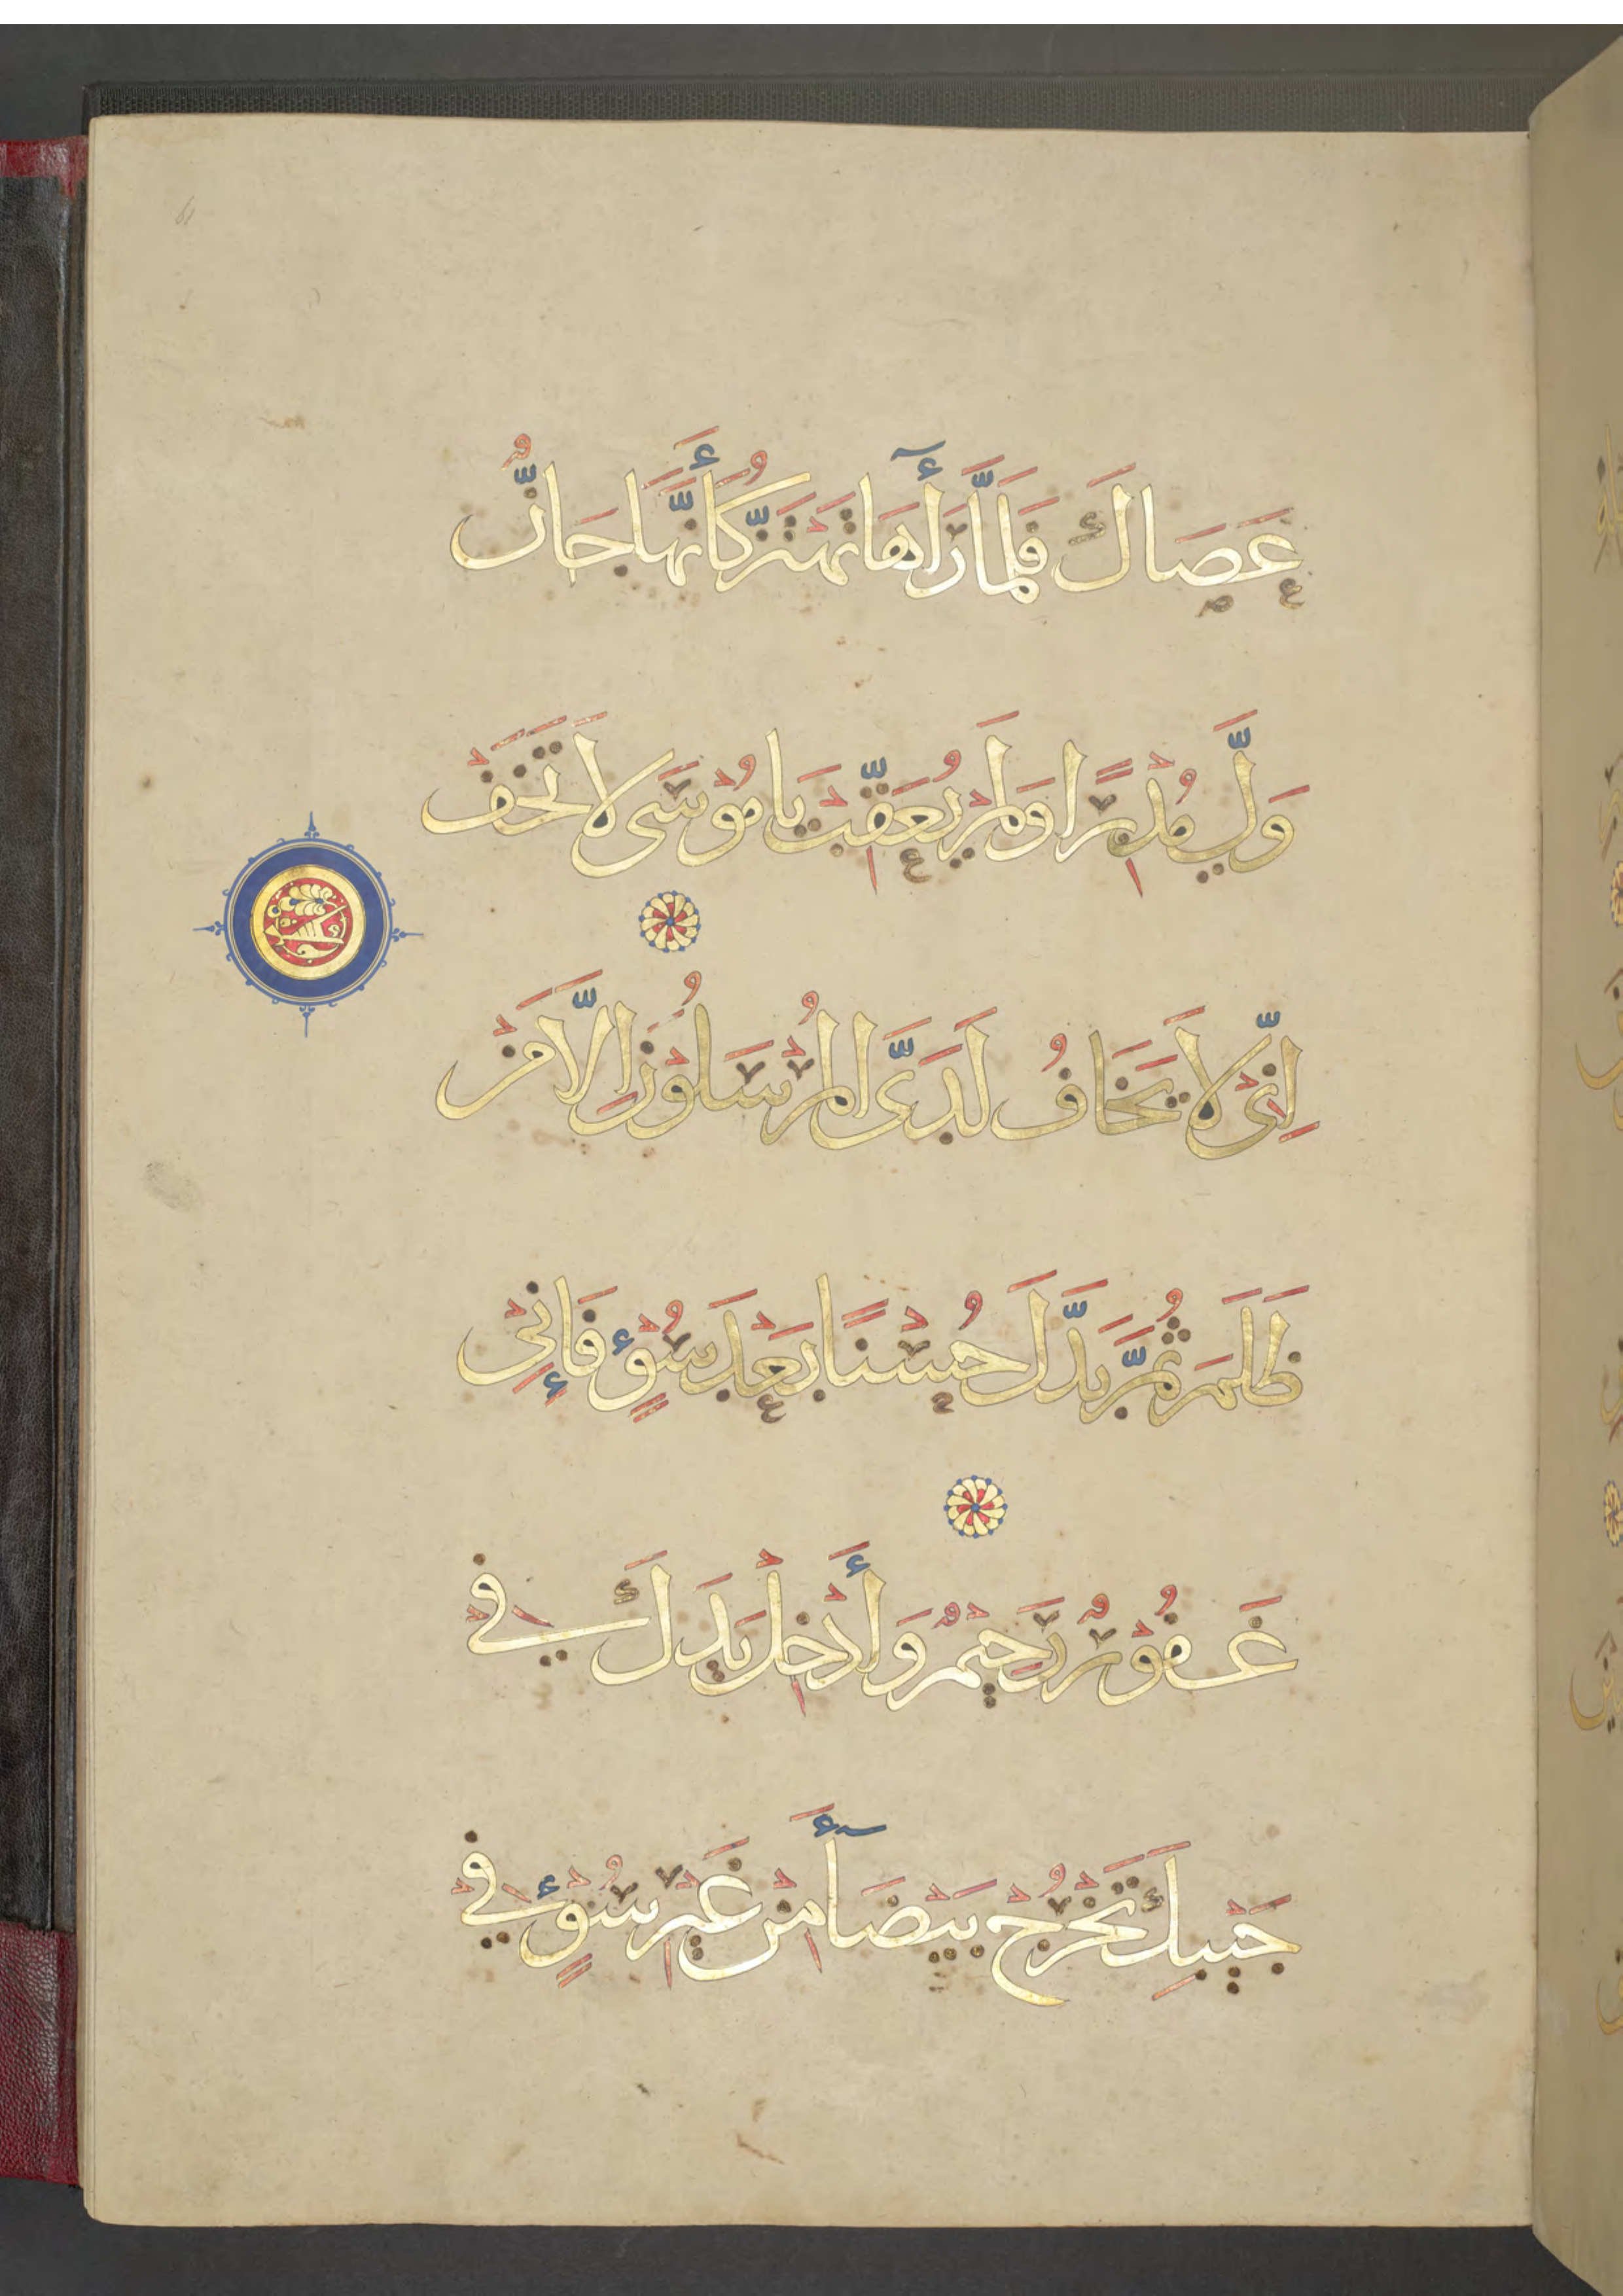 عَصَاكَ فَلَمَّا رَأٓهَا تَهْتَزُّ كَأَنَّهَا جَانٌّ
وَلَّى مُدْبِرًا وَلَمْ يُعَقِّبْ يَا مُوْسَى لَا تَخَفْ
إِنِّيْ لَا يَخَافُ لَدَيَّ الْمُرْسَلُوْنَ إِلَّا مَنْ
ظَلَمَ ثُمَّ بَدَّلَ حُسْنًا بَعْدَ سُوْءٍ فَإِنِّيْ
غَفُوْرٌ رَحِيْمٌ وَأَدْخِلْ يَدَكَ فِيْ
جَيْبِكَ تَخْرُجْ بَيْضَآءَ مِنْ غَيْرِ سُوْءٍ فِيْ